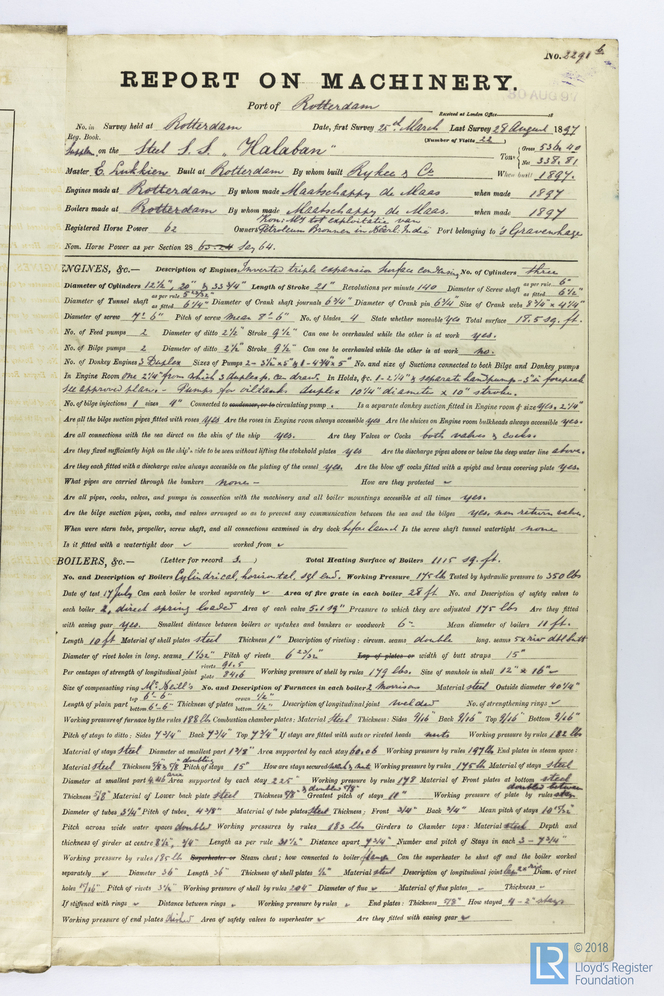 No. 2291
REPORT ON MACHINERY.
Port of Rotterdam
Received at London Office 18
No. in Survey held at Rotterdam Date, first Survey 25th March Last Survey 28 August 1897
Reg. Book. (Number of Visits 22)
on the Steel S.S. "Halaban" Tons Gross 536.40 Net 338.81
Master E. Lukkien Built at Rotterdam By whom built Rykee & Co When built 1897.
Engines made at Rotterdam By whom made Maatschappy de Maas when made 1897
Boilers made at Rotterdam By whom made Maatschappy de Maas. when made 1897
Registered Horse Power 62 Owners tot exploitatie van Petroleum Bronnen in Port belonging to 's Gravenhage
Nom. Horse Power as per Section 28 63.24 Say 64.
ENGINES, &c.— Description of Engines Inverted triple expansion Surface condensing No. of Cylinders three
Diameter of Cylinders 12½" 20" & 33¼" Length of Stroke 21" Revolutions per minute 140 Diameter of Screw shaft as per rule 6" as fitted 6½"
Diameter of Tunnel shaft as per rule as fitted 6¼" Diameter of Crank shaft journals 6¼" Diameter of Crank pin 6¼" Size of Crank webs 8¼" x 4¼"
Diameter of screw 7'-6" Pitch of screw mean 8'-6" No. of blades 4 State whether moveable yes Total surface 18.5 sq. ft.
No. of Feed pumps 2 Diameter of ditto 2½" Stroke 9½" Can one be overhauled while the other is at work yes.
No. of Bilge pumps 2 Diameter of ditto 2½" Stroke 9½" Can one be overhauled while the other is at work no.
No. of Donkey Engines 3 Duplex Sizes of Pumps No. and size of Suctions connected to both Bilge and Donkey pumps
In Engine Room One 2¼" from which 3 duplex p. can draw. In Holds, &c. 1-2¼" & separate handpump - 3" in forepeak
see approved plan. - Pumps for oiltanks duplex 10¼" diameter x 10" stroke.
No. of bilge injections 1 sizes 4" Connected to condenser, or to circulating pump. Is a separate donkey suction fitted in Engine room & size yes, 2¼"
Are all the bilge suction pipes fitted with roses yes Are the roses in Engine room always accessible yes Are the sluices on Engine room bulkheads always accessible yes
Are all connections with the sea direct on the skin of the ship yes. Are they Valves or Cocks both valves & cocks.
Are they fixed sufficiently high on the ship's side to be seen without lifting the stokehold plates yes Are the discharge pipes above or below the deep water line above.
Are they each fitted with a discharge valve always accessible on the plating of the vessel yes. Are the blow off cocks fitted with a spigot and brass covering plate yes.
What pipes are carried through the bunkers none - How are they protected
Are all pipes, cocks, valves, and pumps in connection with the machinery and all boiler mountings accessible at all times yes.
Are the bilge suction pipes, cocks, and valves arranged so as to prevent any communication between the sea and the bilges yes, non return valve.
When were stern tube, propeller, screw shaft, and all connections examined in dry dock before launch Is the screw shaft tunnel watertight none
Is it fitted with a watertight door worked from
BOILERS, &c.— (Letter for record S.) Total Heating Surface of Boilers 1115 sq. ft.
No. and Description of Boilers Cylindrical, horizontal, sgl end. Working Pressure 175 lbs Tested by hydraulic pressure to 350 lbs
Date of test 17 July Can each boiler be worked separately Area of fire grate in each boiler 28 ft No. and Description of safety valves to
each boiler 2, direct spring loaded Area of each valve Pressure to which they are adjusted 175 lbs Are they fitted
with easing gear yes. Smallest distance between boilers or uptakes and bunkers or woodwork 6" Mean diameter of boilers 11 ft.
Length 10 ft Material of shell plates steel Thickness 1" Description of riveting: circum. seams double long. seams
Diameter of rivet holes in long. seams 1 1/32" Pitch of rivets 6 23/32" Lap of plates or width of butt straps 15"
Per centages of strength of longitudinal joint rivets 91.5 plate 84.6 Working pressure of shell by rules 179 lbs. Size of manhole in shell 12" x 16"
Size of compensating ring McNeill's No. and Description of Furnaces in each boiler 2 Morrisons Material steel Outside diameter 40¼"
Length of plain part top 6'-6" bottom 6'-6" Thickness of plates crown ½" bottom ½" Description of longitudinal joint welded No. of strengthening rings
Working pressure of furnace by the rules 188 lbs Combustion chamber plates: Material Steel Thickness: Sides 9/16" Back 9/16" Top 9/16" Bottom 9/16"
Pitch of stays to ditto: Sides 7¾" Back 7¾" Top 7¾" If stays are fitted with nuts or riveted heads nuts Working pressure by rules 182 lbs
Material of stays Steel Diameter at smallest part 1 3/8" Area supported by each stay 60.06 Working pressure by rules 187 lb End plates in steam space:
Material Steel Thickness Pitch of stays 15" How are stays secured Working pressure by rules 175 lb Material of stays steel
Diameter at smallest part 4.46 area Area supported by each stay 225" Working pressure by rules 178 Material of Front plates at bottom steel
Thickness 5/8" Material of Lower back plate steel Thickness 5/8" & doubled 5/8" Greatest pitch of stays 10" Working pressure of plate by rules doubled between
Diameter of tubes 3¼" Pitch of tubes 4 3/8" Material of tube plates steel Thickness: Front 3/4" Back 3/4" Mean pitch of stays
Pitch across wide water spaces doubled Working pressures by rules 183 lbs Girders to Chamber tops: Material steel Depth and
thickness of girder at centre 8½", ¾" Length as per rule 30½" Distance apart 7¾" Number and pitch of Stays in each 3 - 7¾"
Working pressure by rules 185 lb Superheater or Steam chest; how connected to boiler flange Can the superheater be shut off and the boiler worked
separately Diameter 36" Length 36" Thickness of shell plates ½" Material steel Description of longitudinal joint Diam. of rivet
holes 11/16" Pitch of rivets 3½" Working pressure of shell by rules 204" Diameter of flue Material of flue plates Thickness
If stiffened with rings Distance between rings Working pressure by rules End plates: Thickness 5/8" How stayed 4 - 2" stays
Working pressure of end plates dished Area of safety valves to superheater Are they fitted with easing gear
© 2018
LR
Lloyd's Register
Foundation